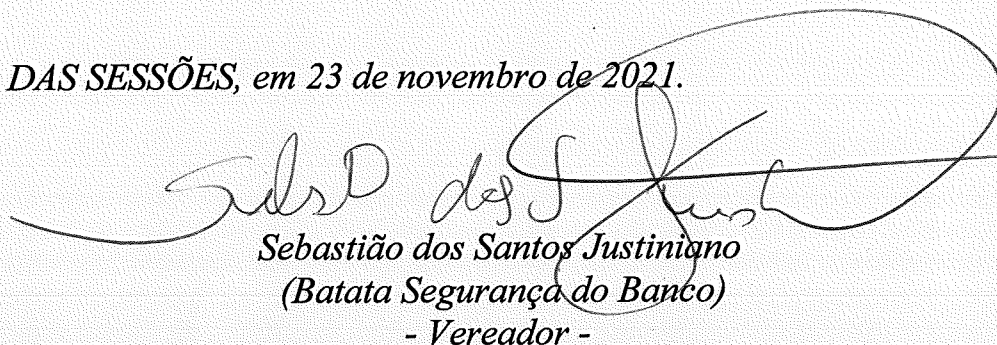 DAS SESSÕES, em 23 de novembro de 2021.
Sebastião dos Santos Justiniano
(Batata Segurança do Banco)
- Vereador -